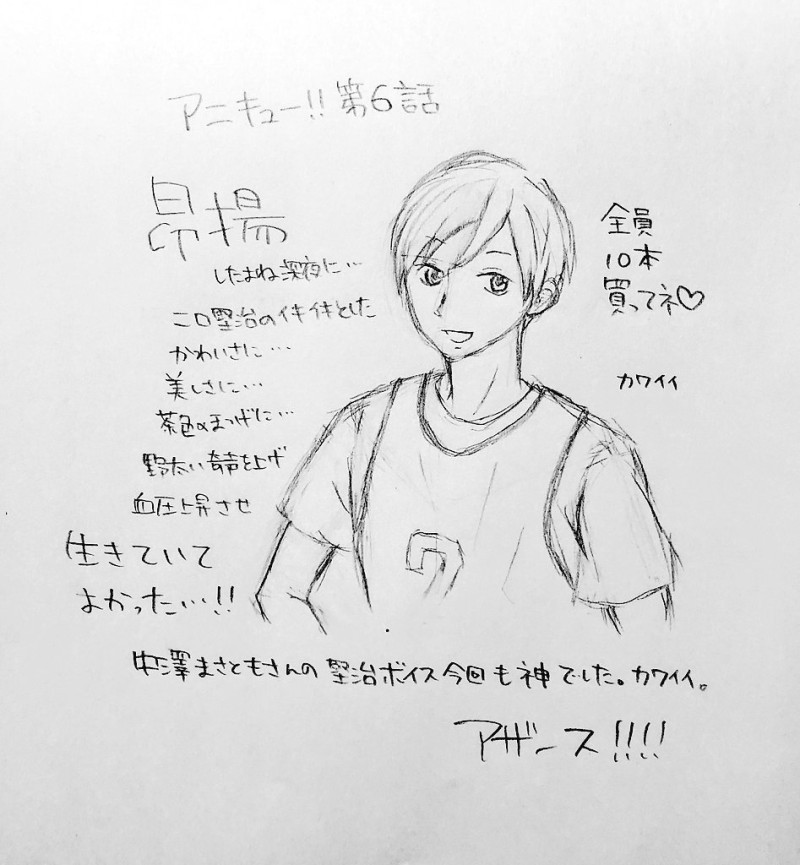 アニキュー!!第6話
昂揚
したよね深夜に…
二口堅治のイキイキとした
かわいさに…
美しさに…
茶色のまつげに…
野太い奇声を上げ
血圧上昇させ
生きていて
よかったぃ…!!
全員
10本
買ってネ♡
カワイイ
中澤まさともさんの堅治ボイス今回も神でした。カワイイ。
アザース!!!!